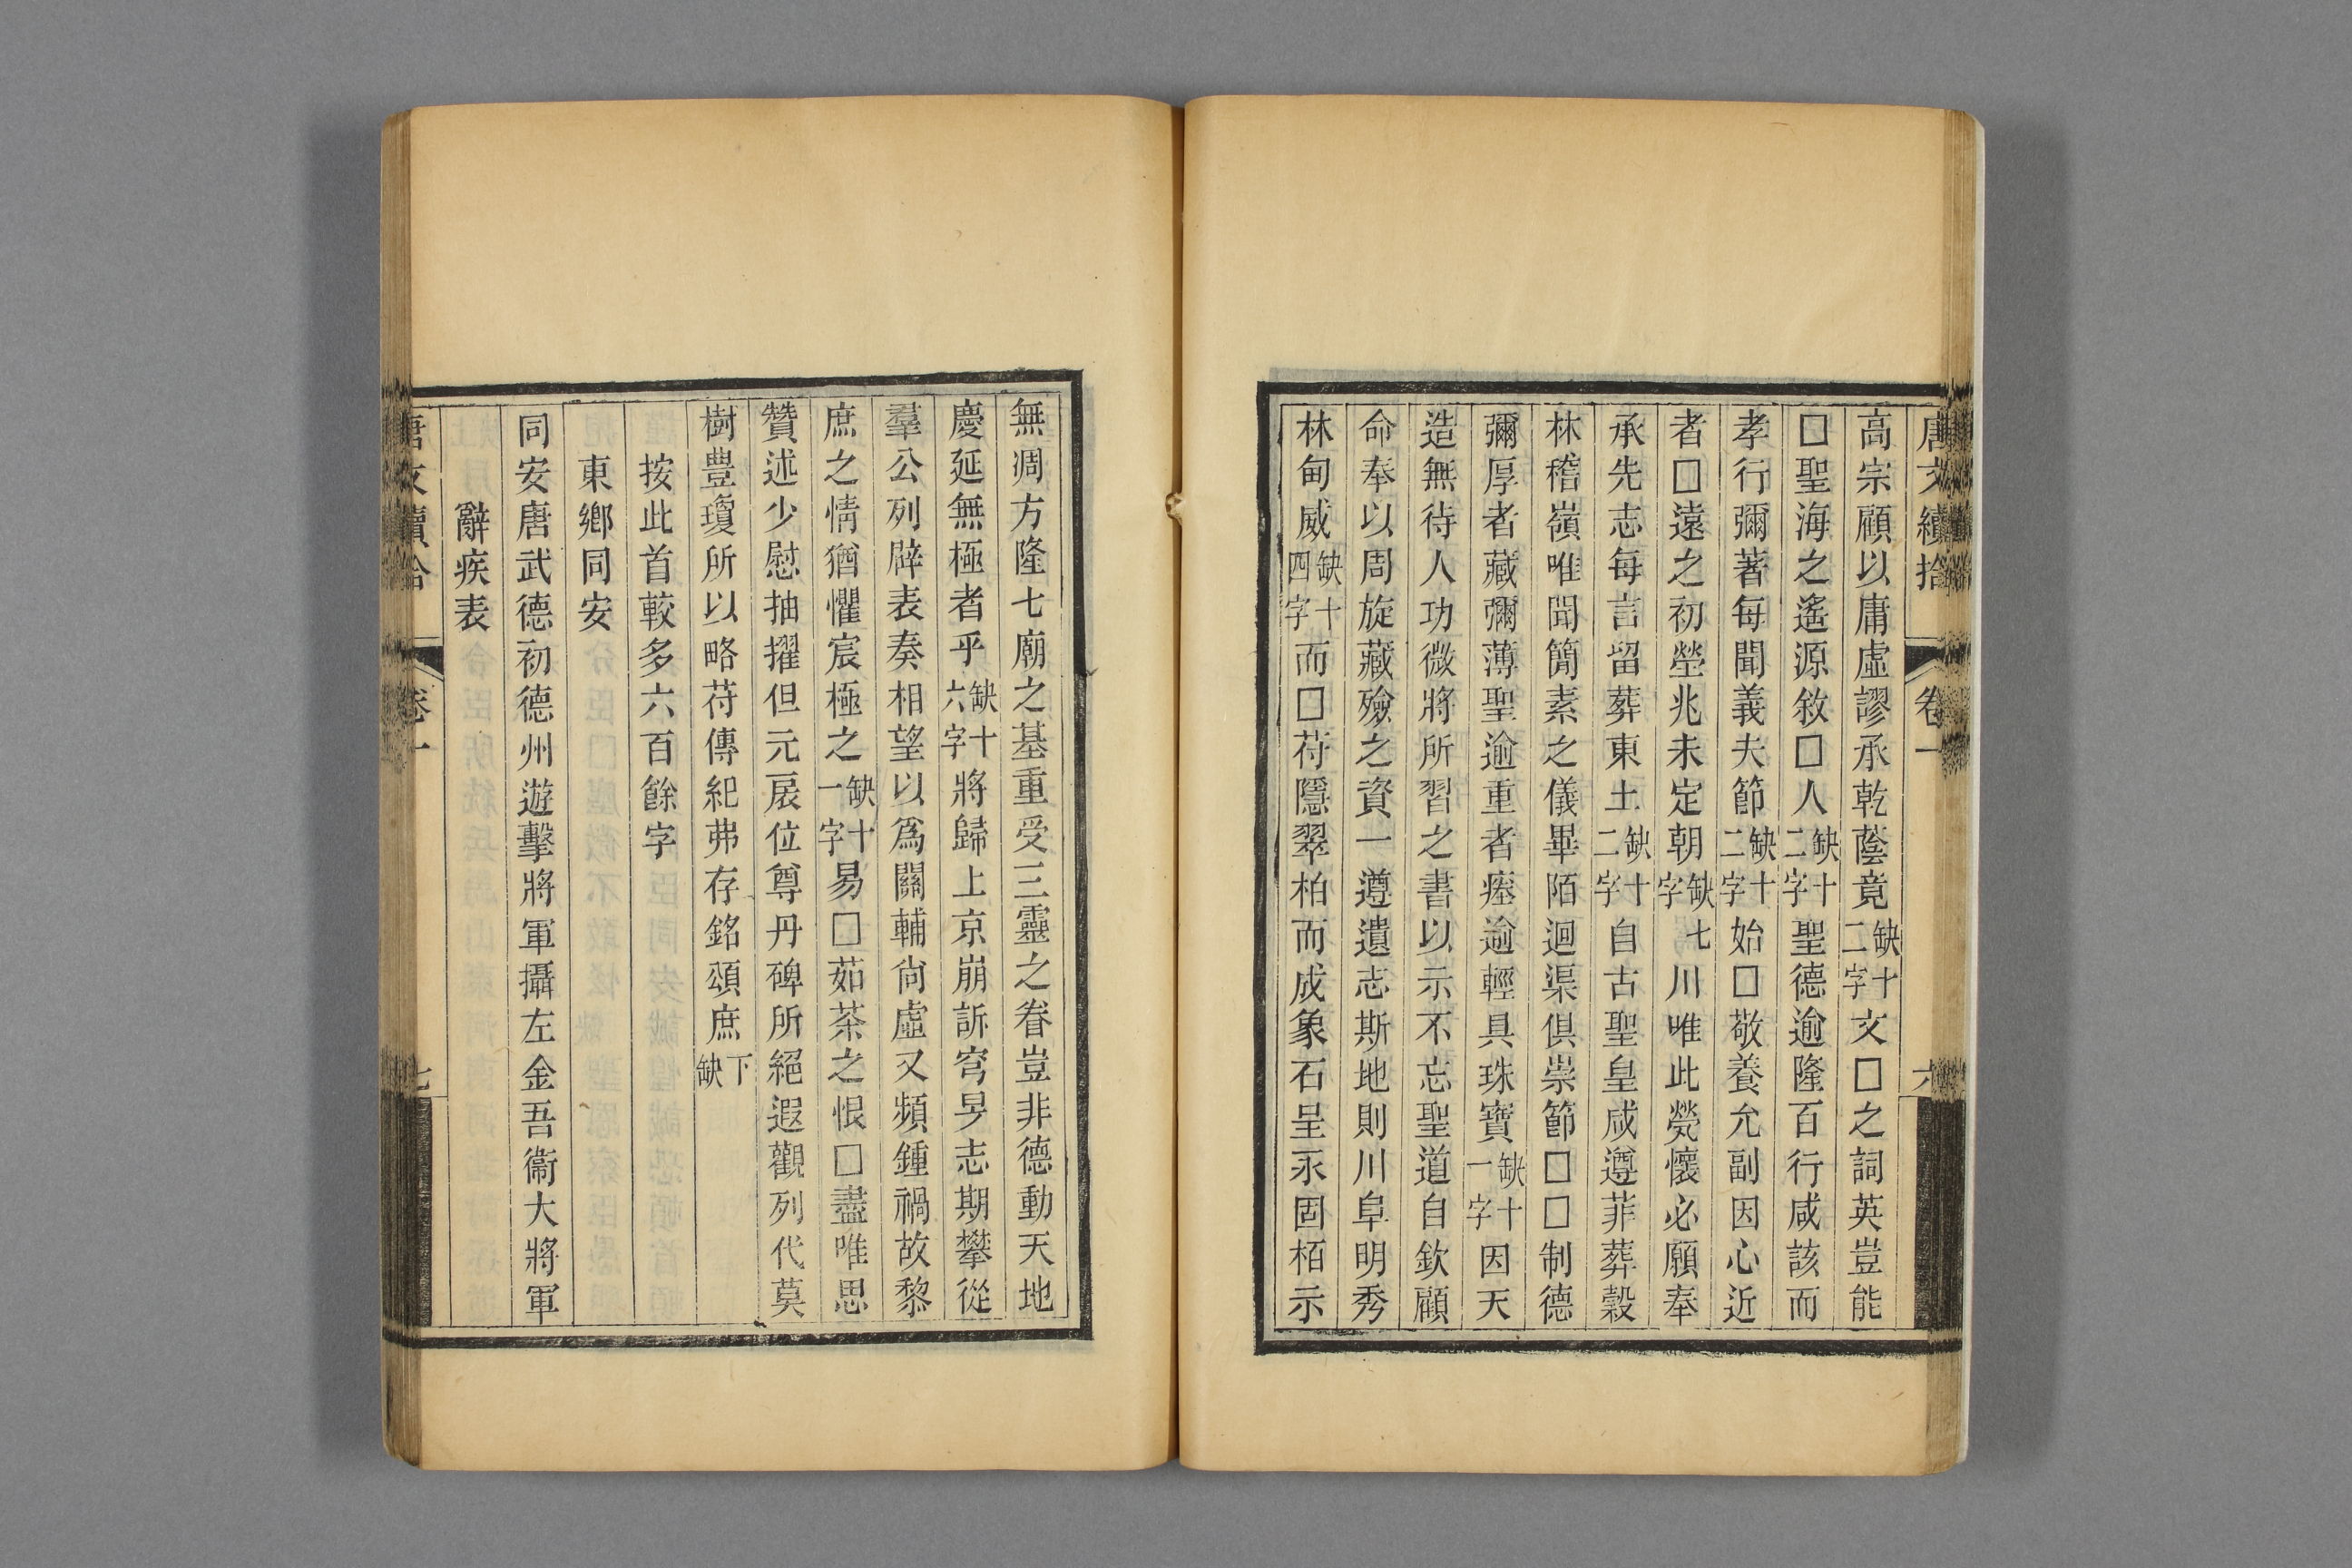 唐文續拾 卷一 六
高宗顧以庸虛謬承乾蔭竟缺十二字文□之詞英豈能
□聖海之遙源敘□人缺十二字聖德逾隆百行咸該而
孝行彌著每聞義夫節缺十二字始□敬養允副因心近
者□遠之初塋兆未定朝缺七字川唯此煢懷必願奉
承先志每言留葬東土缺十二字自古聖皇咸遵菲葬穀
林稽嶺唯聞簡素之儀畢陌迴渠俱崇節□□制德
彌厚者藏彌薄聖逾重者瘞逾輕具珠寶缺十一字因天
造無待人功微將所習之書以示不忘聖道自欽顧
命奉以周旋藏殮之資一遵遺志斯地則川阜明秀
林甸威缺十四字而□苻隱翠柏而成象石呈永固栢示
無凋方隆七廟之基重受三靈之眷豈非德動天地
慶延無極者乎缺十六字將歸上京崩訴穹旻志期攀從
羣公列辟表奏相望以爲關輔尙虛又頻鍾禍故黎
庶之情猶懼宸極之缺十一字易□茹荼之恨□盡唯思
贊述少慰抽擢但元扆位尊丹碑所絕遐觀列代莫
樹豐瓊所以略苻傳紀弗存銘頌庶下缺
按此首較多六百餘字
東鄉同安
同安唐武德初德州遊擊將軍攝左金吾衞大將軍
辭疾表
唐文續拾 卷一 七